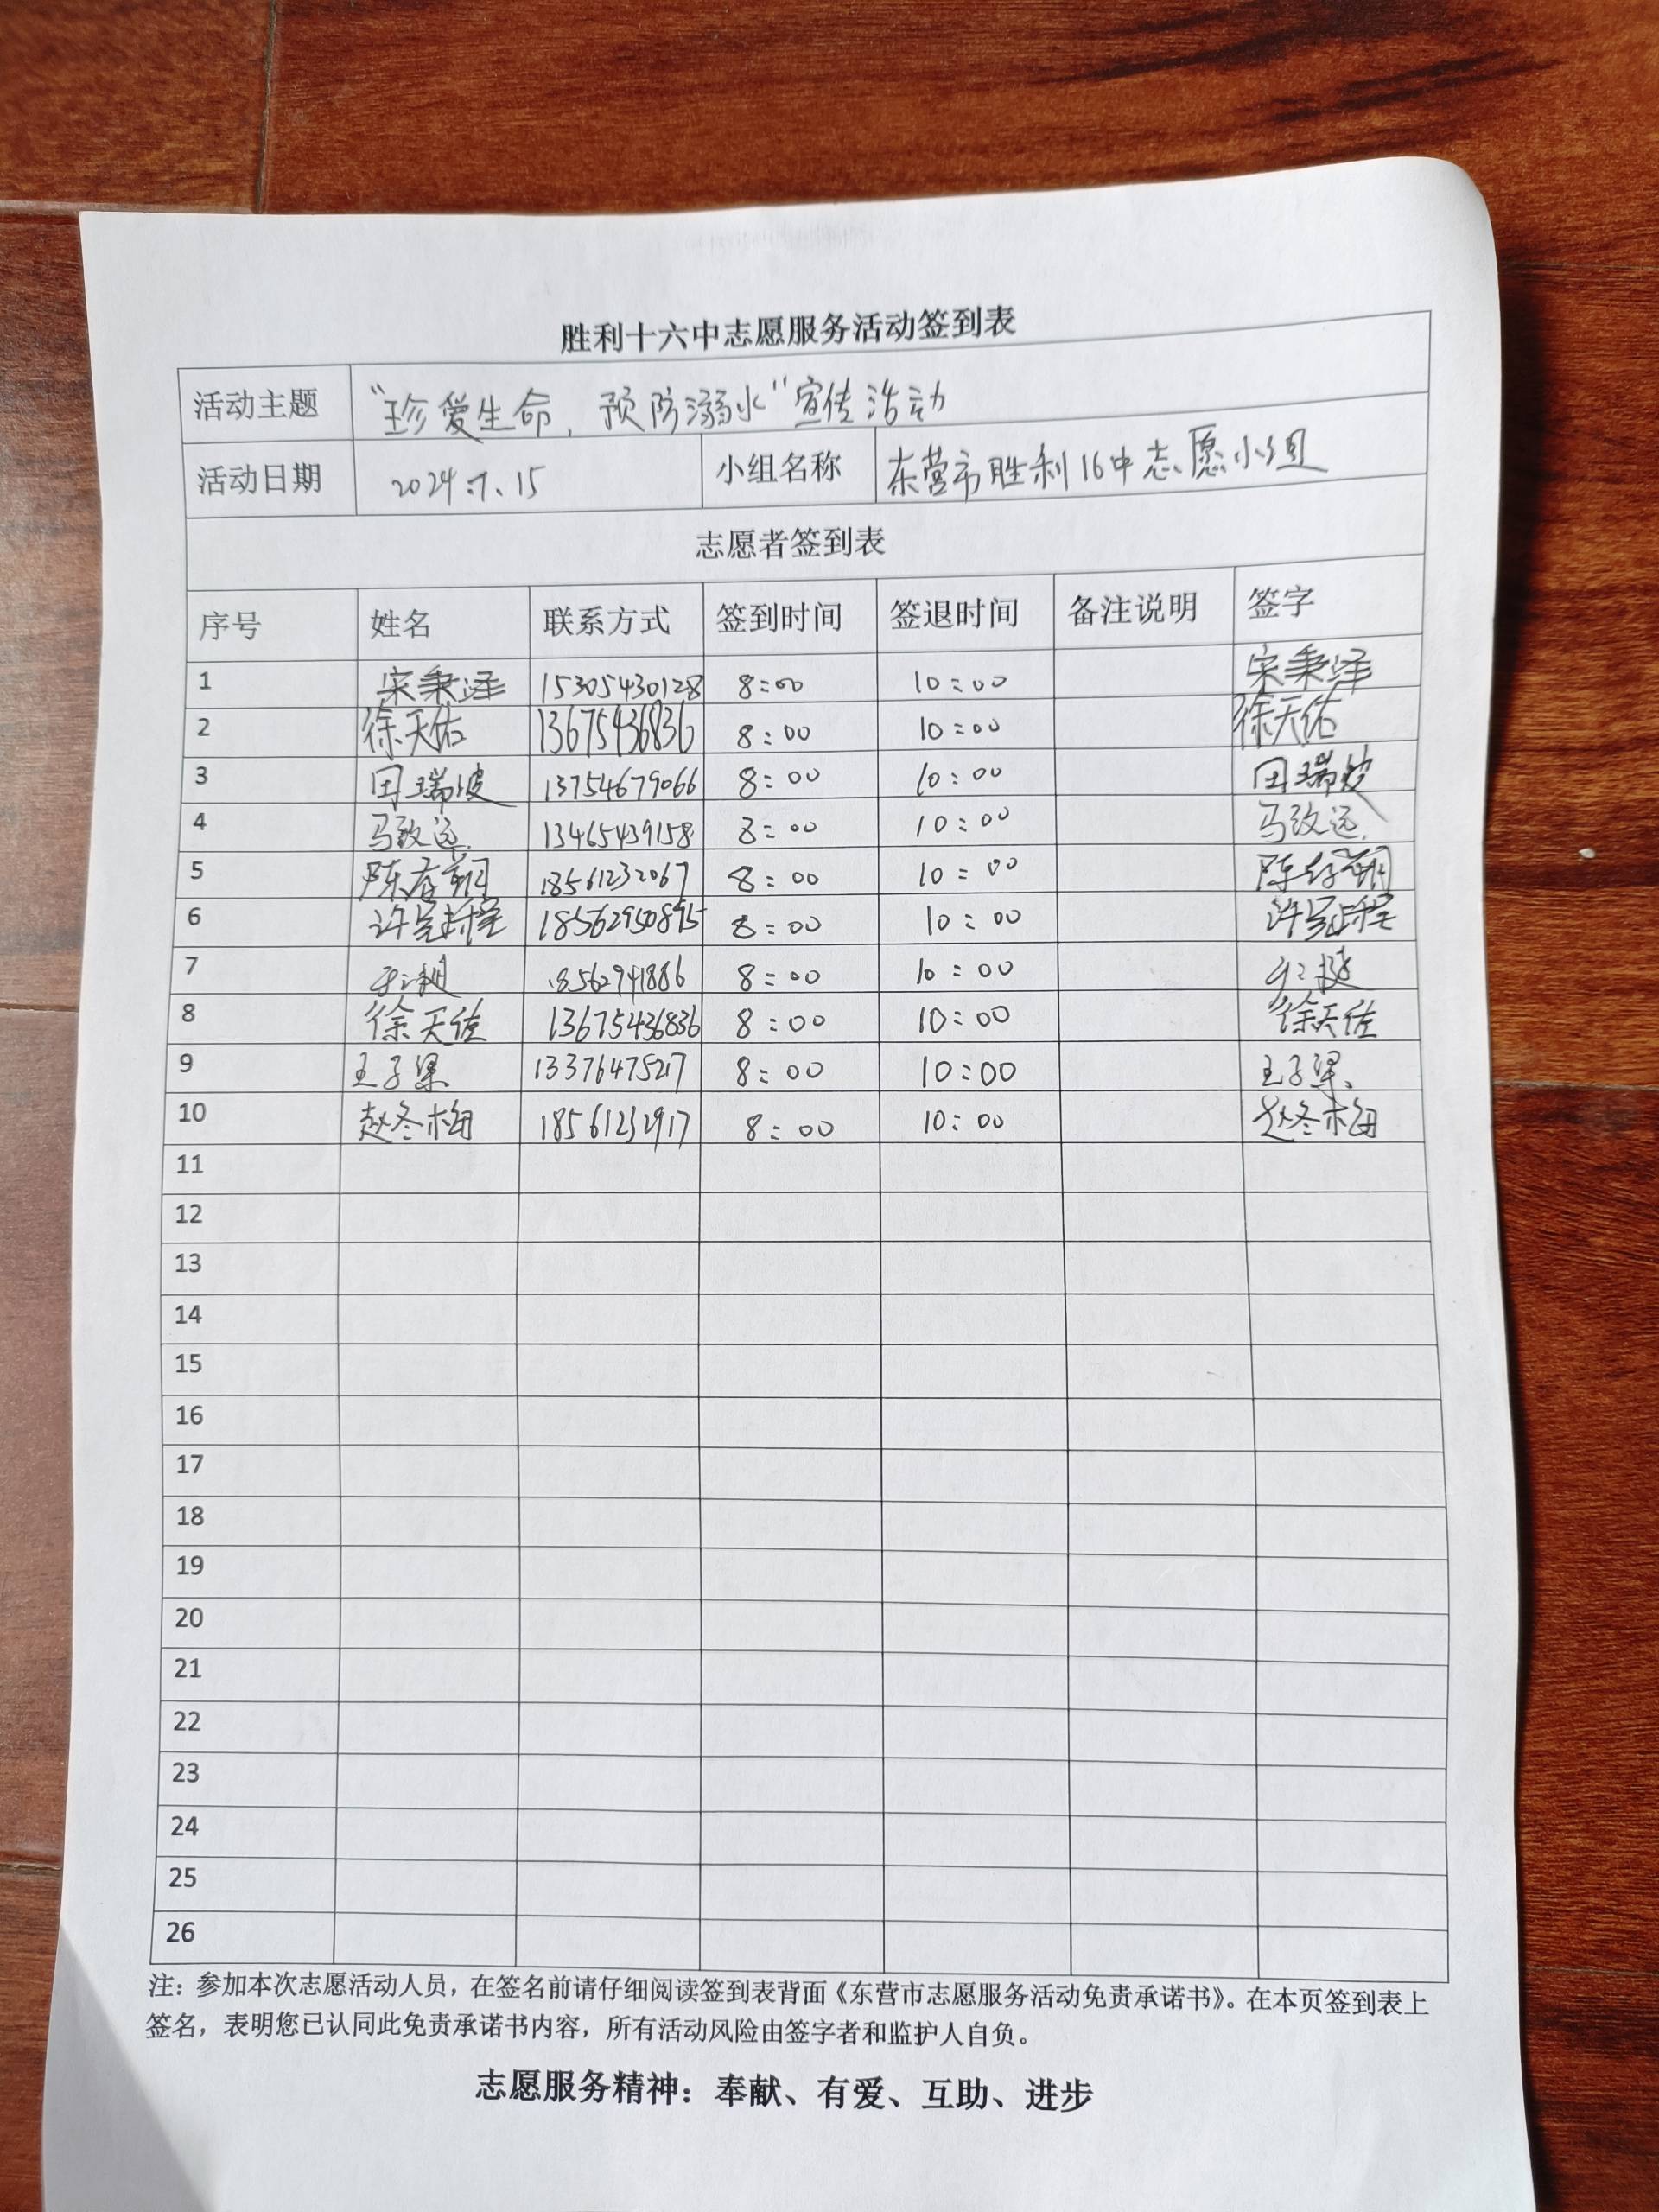 胜利十六中志愿服务活动签到表
活动主题 “珍爱生命，预防溺水”宣传活动
活动日期 2024.7.15 小组名称 东营市胜利16中志愿小组
志愿者签到表
序号 姓名 联系方式 签到时间 签退时间 备注说明 签字
1 宋秉泽 15305430128 8:00 10:00 宋秉泽
2 徐天佑 13675436836 8:00 10:00 徐天佑
3 田瑞波 13754679066 8:00 10:00 田瑞波
4 马致远 13465439158 8:00 10:00 马致远
5 18561232067 8:00 10:00
6 18562950895 8:00 10:00
7 18562941886 8:00 10:00
8 徐天佐 13675436836 8:00 10:00 徐天佐
9 王子梁 13376475217 8:00 10:00 王子梁
10 赵冬梅 18561232917 8:00 10:00 赵冬梅
11
12
13
14
15
16
17
18
19
20
21
22
23
24
25
26
注：参加本次志愿活动人员，在签名前请仔细阅读签到表背面《东营市志愿服务活动免责承诺书》。在本页签到表上
签名，表明您已认同此免责承诺书内容，所有活动风险由签字者和监护人自负。
志愿服务精神：奉献、有爱、互助、进步